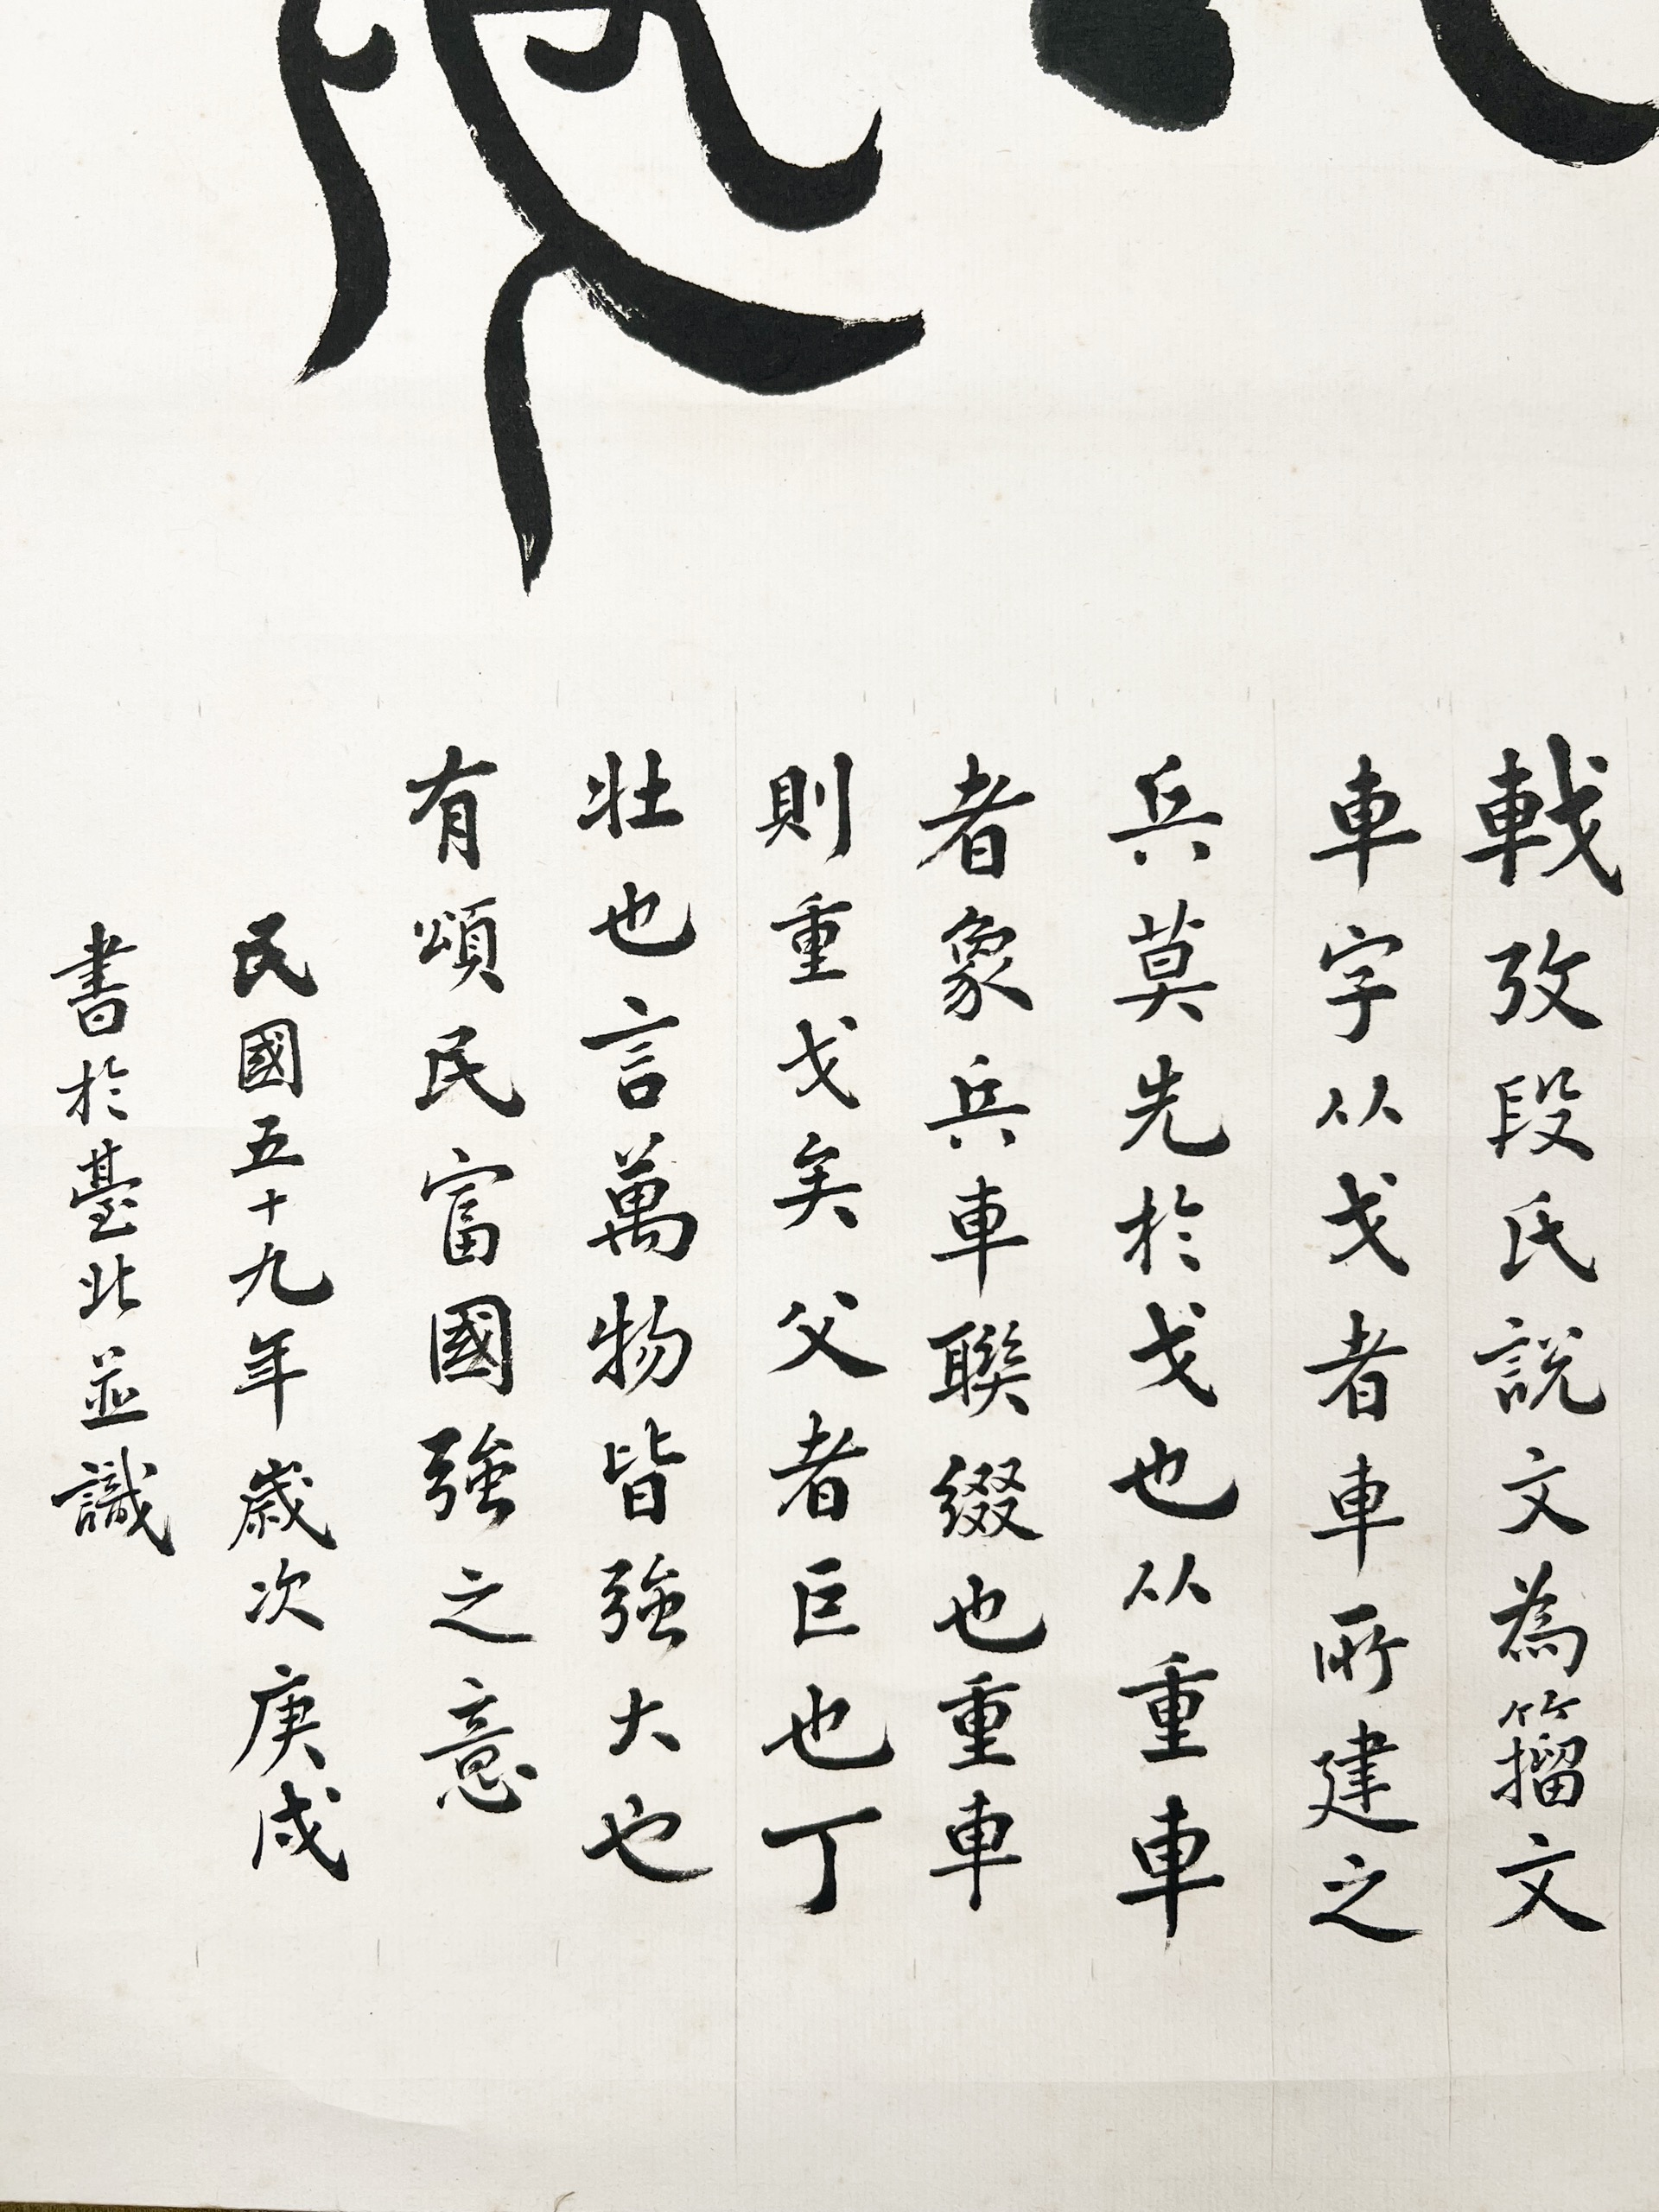 戟攷段氏說文為籀文
車字从戈者車所建之
兵莫先於戈也从重車
者象兵車聯綴也重車
則重戈矣父者巨也丁
壯也言萬物皆強大也
有頌民富國強之意
民國五十九年歲次庚戌
書於臺北並識